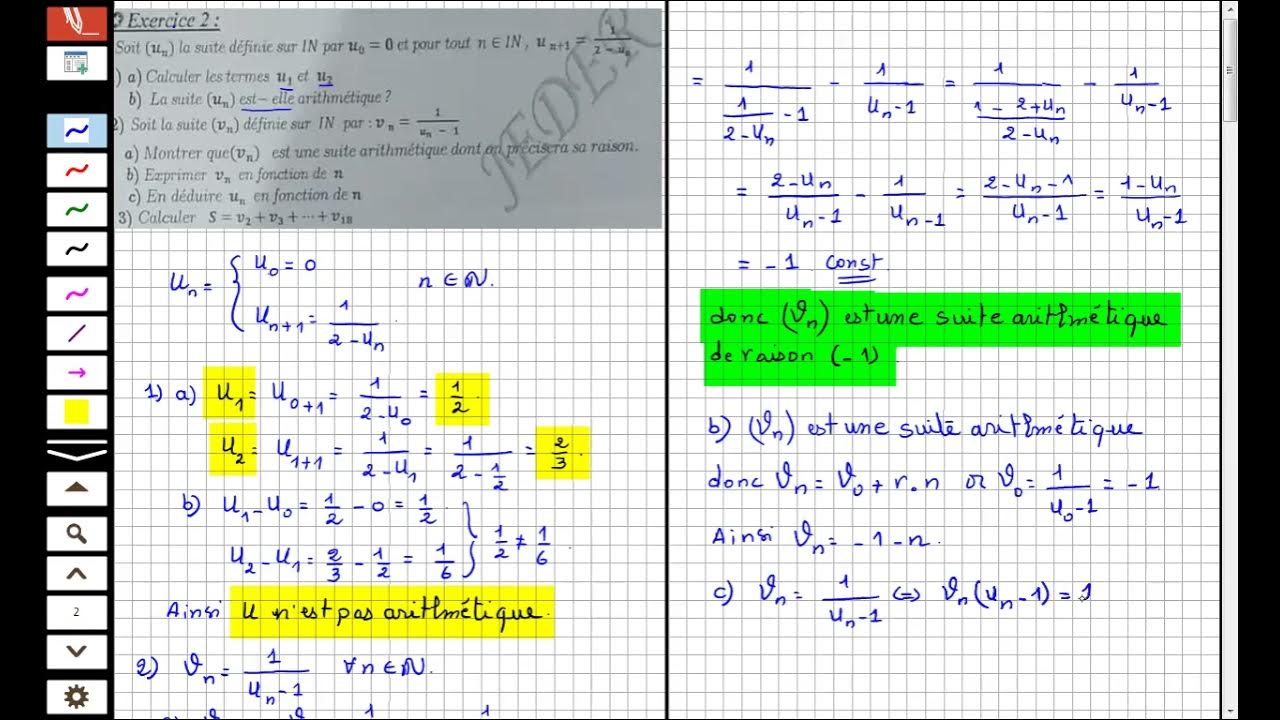 Exercice 2 :
Soit (uₙ) la suite définie sur IN par u₀ = 0 et pour tout n ∈ IN, uₙ₊₁ = 1/(2 − uₙ)
) a) Calculer les termes u₁ et u₂
b) La suite (uₙ) est − elle arithmétique ?
2) Soit la suite (vₙ) définie sur IN par : vₙ = 1/(uₙ − 1)
a) Montrer que(vₙ) est une suite arithmétique dont on précisera sa raison.
b) Exprimer vₙ en fonction de n
c) En déduire uₙ en fonction de n
3) Calculer S = v₂ + v₃ + ⋯ + v₁₈
JEDER
Uₙ = { U₀ = 0
Uₙ₊₁ = 1/(2 − Uₙ) n ∈ ℕ.
1) a) U₁ = U₀₊₁ = 1/(2 − U₀) = 1/2
U₂ = U₁₊₁ = 1/(2 − U₁) = 1/(2 − 1/2) = 2/3.
b) U₁ − U₀ = 1/2 − 0 = 1/2
U₂ − U₁ = 2/3 − 1/2 = 1/6 } 1/2 ≠ 1/6.
Ainsi U n'est pas arithmétique.
2) ϑₙ = 1/(Uₙ − 1) ∀n ∈ ℕ.
2
= 1/(1/(2 − Uₙ) − 1) − 1/(Uₙ − 1) = 1/((1 − 2 + Uₙ)/(2 − Uₙ)) − 1/(Uₙ − 1)
= (2 − Uₙ)/(Uₙ − 1) − 1/(Uₙ − 1) = (2 − Uₙ − 1)/(Uₙ − 1) = (1 − Uₙ)/(Uₙ − 1)
= −1 const
donc (ϑₙ) est une suite arithmétique
de raison (−1).
b) (ϑₙ) est une suite arithmétique
donc ϑₙ = ϑ₀ + r.n or ϑ₀ = 1/(U₀ − 1) = −1
Ainsi ϑₙ = −1 − n.
c) ϑₙ = 1/(Uₙ − 1) ⇔ ϑₙ(Uₙ − 1) = 1